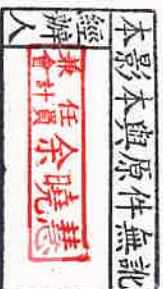 本影本與原件無訛
經辦人
兼任
會計員
余曉慧